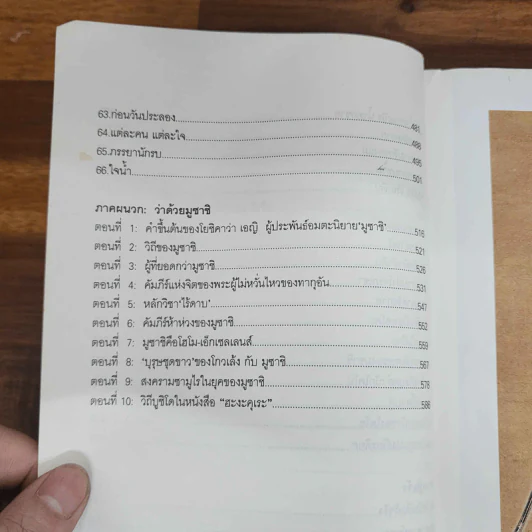 63.ก่อนวันประลอง....................481
64.แต่ละคน แต่ละใจ....................488
65.ภรรยานักรบ....................495
66.ใจน้ำ....................501
ภาคผนวก: ว่าด้วยมูซาชิ
ตอนที่ 1: คำขึ้นต้นของโยชิคาว่า เอญิ ผู้ประพันธ์อมตะนิยาย'มูซาชิ'..........516
ตอนที่ 2: วิถีของมูซาชิ....................521
ตอนที่ 3: ผู้ที่ยอดกว่ามูซาชิ....................526
ตอนที่ 4: คัมภีร์แห่งจิตของพระผู้ไม่หวั่นไหวของทากุอัน....................531
ตอนที่ 5: หลักวิชา'ไร้ดาบ'....................547
ตอนที่ 6: คัมภีร์ห้าห่วงของมูซาชิ....................552
ตอนที่ 7: มูซาชิคือโฮโม-เอ็กเซลเลนส์....................559
ตอนที่ 8: 'บุรุษชุดขาว'ของโกวเล้ง กับ มูซาชิ....................567
ตอนที่ 9: สงครามซามูไรในยุคของมูซาชิ....................578
ตอนที่ 10: วิถีบูชิโดในหนังสือ "ฮะงะคุเระ"....................586